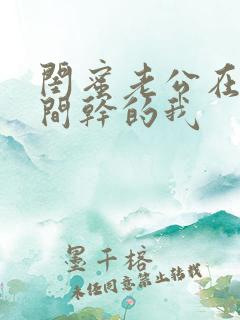 閨蜜老公在
間幹的我
墨千榕
未经同意禁止转载